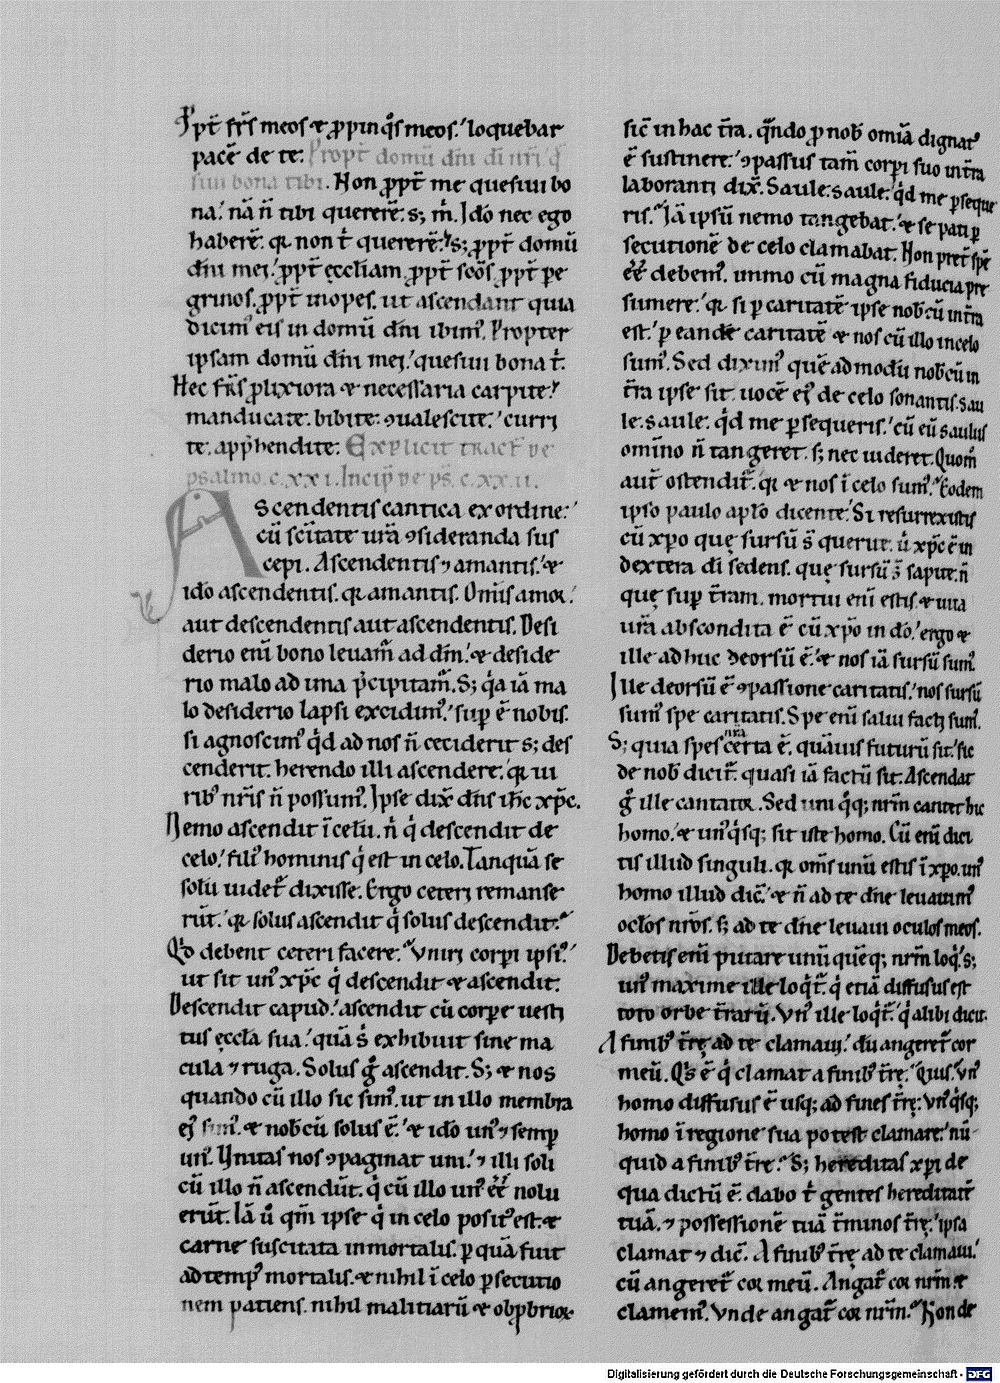 Ppt̄ frs̄ meos ⁊ ꝓpinq̊s meos.' loquebar
pacē de te: Propt̄ domū dn̄i dī nr̄i q̄
siui bona tibi. Non ꝓpt̄ me quesiui bo
na. nā n̄ tibi quererē: s; m̄. Ido nec ego
haberē: qr non t̄ quererē: s; ꝓpt̄ domū
dn̄i mei.' ꝓpt̄ ęccl̄iam, ꝓpt̄ sc̄os, ꝓpt̄ pe
grinos, ꝓpt̄ inopes, ut ascendant quia
dicim᷒ eis in domū dn̄i ibim᷒. Propter
ipsam domū dn̄i mei.' quesiui bona t̄.
Hec frs̄ ꝓlixiora ⁊ necessaria carpite.'
manducate: bibite: ꝯualescite.' curri
te: app̄hendite: Explicit tract̄ de
psalmo .c.xxi. Incip̄ de ps̄. c.xx.ii.
Ascendentis cantica ex ordine:'
cū scīitate ur̄a ꝯsideranda sus
cepi. Ascendentis ⁊ amantis.' ⁊
ido ascendentis. qr amantis. Omīs amor.'
aut descendentis aut ascendentis. Desi
derio enī bono leuam̄ ad dm̄.' ⁊ deside
rio malo ad ima p̄cipitam̄. S; q̇a iā ma
lo desiderio lapsi excidim᷒.' sup̄ ē nobis.
si agnoscim᷒ q̇d ad nos n̄ ceciderit s; des
cenderit: herendo illi ascendere.' qr ui
rib᷒ nr̄is n̄ possum᷒. Ipse dix̄ dn̄s ih̄c xp̄c.
Nemo ascendit ī celū. n̄ q̇ descendit de
celo.' fili᷒ hominis q̇ est in celo. Tanquā se
solū uidet̄ dixisse. Ergo ceteri remanse
rūt.' qr solus ascendit q̇ solus descendit.'
Qd̊ debent ceteri facere.' Vniri corpi ipsi᷒.'
ut sit un᷒ xp̄c q̇ descendit ⁊ ascendit.
Descendit capud.' ascendit cū corpe uesti
tus ęccl̄a sua.' quā s̄ exhibuit sine ma
cula ⁊ ruga. Solus ḡ ascendit. S; ⁊ nos
quando cū illo sic sum᷒. ut in illo membra
ei᷒ sim᷒. ⁊ nobcū solus ē.' ⁊ ido un᷒ ⁊ semp
un᷒. Unitas nos ꝯpaginat uni.' ⁊ illi soli
cū illo n̄ ascendūt. q̇ cū illo un᷒ ēē nolu
erūt. Iā ů qm̄ ipse q̇ in celo posit᷒ est. ⁊
carne suscitata inmortalis. ꝑ quā fuit
ad temp᷒ mortalis. ⁊ nihil ī celo ꝑsecutio
nem patiens. nihil malitiarū ⁊ obꝓbrioꝝ
sic̄ in hac tr̄a. qn̄do ꝓ nob᷒ omīa dignat᷒
ē sustinere.' ꝯpassus tam̄ corpi suo in tr̄a
laboranti dix̄. Saule: saule.' q̇d me ꝑseque
ris.' Iā ipsū nemo tangebat.' ⁊ se pati ꝑ
secutionē de celo clamabat. Non pret̄ spē
ēē debem᷒. immo cū magna fiducia pre
sumere.' qr si ꝑ caritatē ipse nob᷒cū in tr̄a
est.' ꝑ eandē caritatē ⁊ nos cū illo in celo
sum᷒. Sed dixim᷒ quē ad modū nob᷒cū in
tr̄a ipse sit. uocē ei᷒ de celo sonantis. sau
le. saule. q̇d me ꝑsequeris.' cū eū saulus
omīno n̄ tangeret. s; nec uideret. Quom̄
aut̄ ostendit᷒. qr ⁊ nos ī celo sum᷒.' Eodem
ipso paulo apl̄o dicente.' Si resurrexistis
cū xp̄o quę sursū s̄ querite. ů xp̄c ē in
dextera dī sedens. quę sursū s̄ sapite. n̄
quę sup̄ tr̄am. mortui enī estis. ⁊ uita
ur̄a abscondita ē cū xp̄o in dō.' ergo ⁊
ille adhuc deorsū ē.' ⁊ nos iā sursū sum᷒.
Ille deorsū ē ꝯpassione caritatis.' nos sursū
sum᷒ spe caritatis. Spe enī salui facti sum᷒.
S; quia spes nr̄a certa ē. quāuis futurū sit.' sic
de nob᷒ dicit᷒. quasi iā factū sit. Ascendat
ḡ ille cantator. Sed uni q̇q; nr̄m cantet hic
homo.' ⁊ un᷒q̇sq; sit iste homo. Cū enī dici
tis illud singuli. qr om̄s unū estis ī xp̄o. un᷒
homo illud dic̄.' ⁊ n̄ ad te dn̄e leuauim᷒
ocl̄os nr̄os. s; ad te dn̄e leuaui oculos meos.
Debetis enī putare unū quēq; nr̄m loq̇.' s;
un᷒ maxime ille loq̇t᷒. q̇ etiā diffusus est
toto orbe tr̄arū. Vn᷒ ille loq̇t᷒.' q̇ alibi dicit.
A finib᷒ tr̄ę ad te clamaui.' dū angeret᷒ cor
meū. Q̇s ē q̇ clamat a finib᷒ tr̄ę.' Quis.' un᷒
homo diffusus ē usq; ad fines tr̄ę. Vn᷒q̇sq;
homo ī regione sua potest clamare.' nū
quid a finib᷒ tr̄e.' S; hereditas xp̄i de
qua dictū ē. dabo t̄ gentes hereditatē
tuā. ⁊ possessionē tuā t̄minos tr̄ę.' ipsa
clamat ⁊ dic̄. A finib᷒ tr̄ę ad te clamaui.'
cū angeret᷒ cor meū. Angat᷒ cor nr̄m ⁊
clamem᷒. Vnde angat᷒ cor nr̄m.' Non de
Digitalisierung gefördert durch die Deutsche Forschungsgemeinschaft - DFG